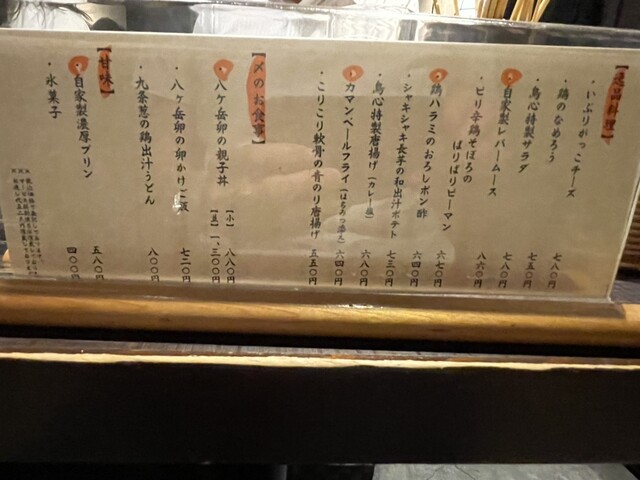 ・いぶりがっこチーズ 七八〇円
・鶏のなめろう 七五〇円
・鳥心特製サラダ 七八〇円
・自家製レバームース 八六〇円
・ピリ辛鶏そぼろの
ぱりぱりピーマン 六七〇円
・鶏ハラミのおろしポン酢 六四〇円
・シャキシャキ長芋の和出汁ポテト 七三〇円
・鳥心特製唐揚げ（カレー塩） 六八〇円
・カマンベールフライ（はちみつ添え） 六四〇円
・こりこり軟骨の青のり唐揚げ 五五〇円
【〆のお食事】
・八ヶ岳卵の親子丼 【小】 八八〇円
【並】 一、三〇〇円
・八ヶ岳卵の卵かけご飯 七二〇円
・九条葱の鶏出汁うどん 八〇〇円
【甘味】
・自家製濃厚プリン 五八〇円
・氷菓子 四〇〇円